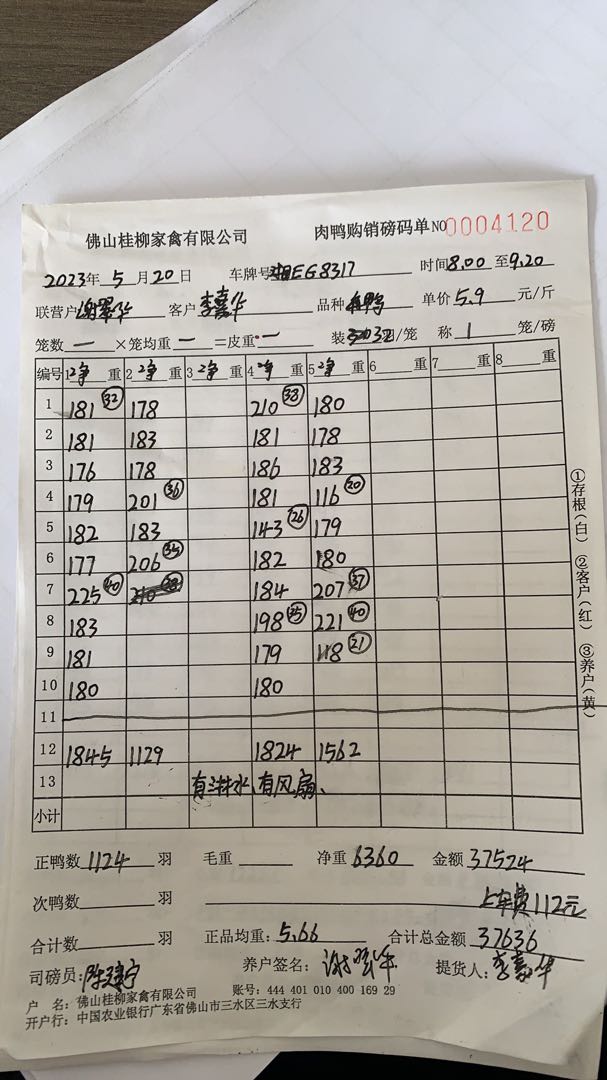 佛山桂柳家禽有限公司 肉鸭购销磅码单 NO 0004120
2023年 5月 20日 车牌号 湘EG8317 时间 8.00 至 9.20
联营户 客户 李嘉华 品种 单价 5.9 元/斤
笼数 一 ×笼均重 一 =皮重 一 装 32 只/笼 称 1 笼/磅
编号 1 净 重 2 净 重 3 净 重 4 净 重 5 净 重 6 重 7 重 8 重
1 181 (32) 178 210 (38) 180
2 181 183 181 178
3 176 178 186 183
4 179 201 (36) 181 116 (20)
5 182 183 143 (26) 179
6 177 206 182 180
7 225 (40) 184 207 (37)
8 183 198 (35) 221 (40)
9 181 179 118 (21)
10 180 180
11
12 1845 1129 1824 1562
13 有淋水、有风扇、
小计
①存根(白) ②客户(红) ③养户(黄)
正鸭数 1124 羽 毛重 净重 6360 金额 37524
次鸭数 羽 上车费112元
合计数 羽 正品均重: 5.66 合计总金额 37636
司磅员: 陈建宁 养户签名: 提货人: 李嘉华
户 名: 佛山桂柳家禽有限公司 账号: 444 401 010 400 169 29
开户行: 中国农业银行广东省佛山市三水区三水支行